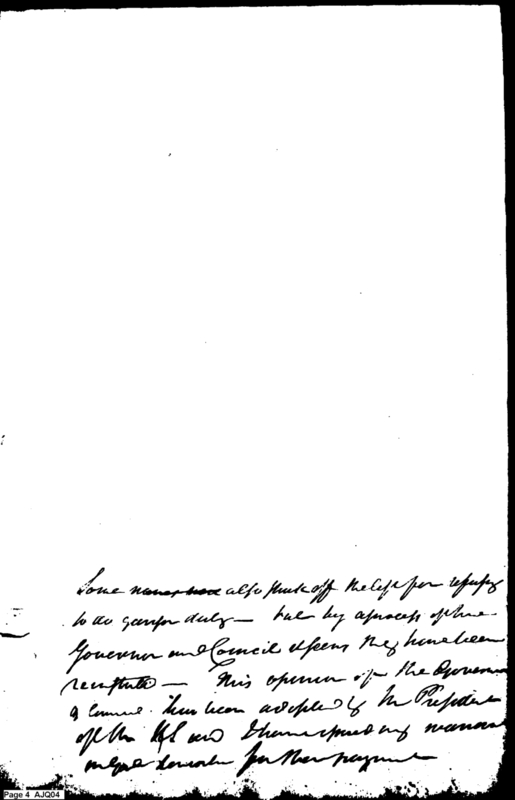 Some also struck off the list for refusing
to do duty — but by a process of the
Governor and Council it seems they have been
— This opinion of the Governor
& Council has been adopted by the President
of the and I have issued my warrant
for their payment
Page 4 AJQ04